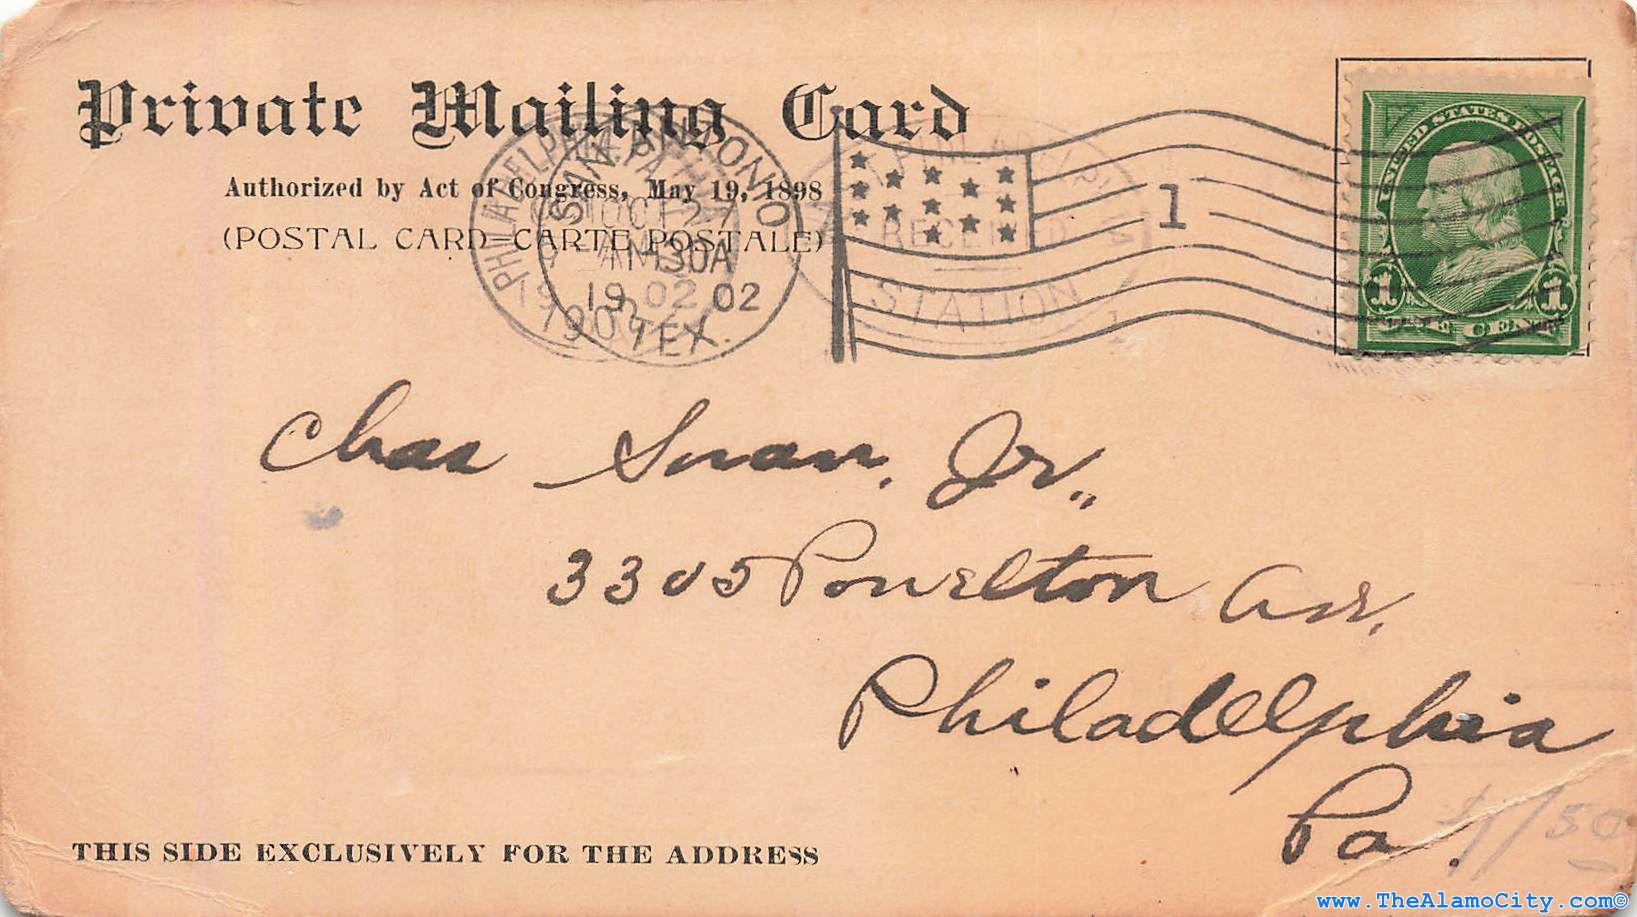 Private Mailing Card
Authorized by Act of Congress, May 19, 1898
(POSTAL CARD=CARTE POSTALE)
SAN ANTONIO
TEX.
1902
PHILADELPHIA, PA.
OCT 27
1902
RECEIVED
STATION
1
UNITED STATES POSTAGE
1 1
ONE CENT
Chas Swan, Jr.,
3305 Powelton Ave,
Philadelphia
Pa.
$1/50
THIS SIDE EXCLUSIVELY FOR THE ADDRESS
www.TheAlamoCity.com©